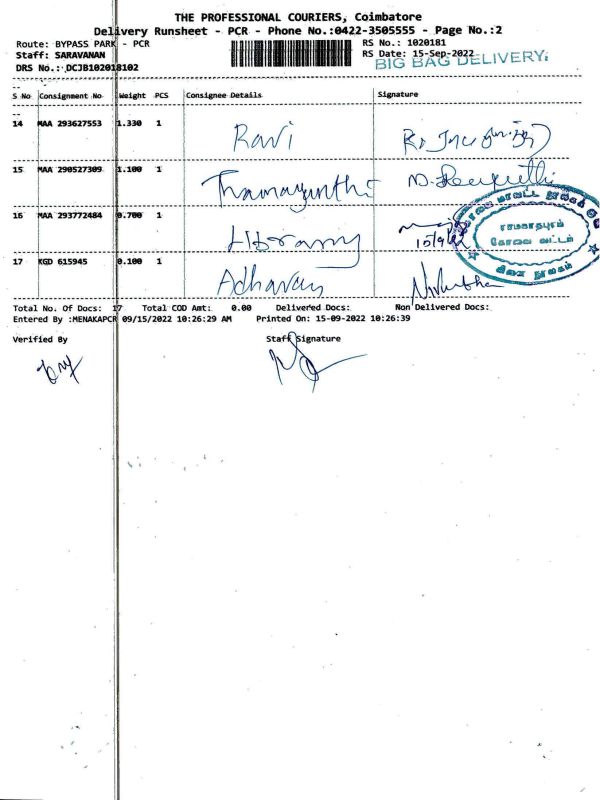 THE PROFESSIONAL COURIERS, Coimbatore
Delivery Runsheet - PCR - Phone No.:0422-3505555 - Page No.:2
Route: BYPASS PARK - PCR
RS No.: 1020181
Staff: SARAVANAN
RS Date: 15-Sep-2022
DRS No.: DCJB102018102
BIG BAG DELIVERY.
S No Consignment No Weight PCS Consignee Details Signature
14 MAA 293627553 1.330 1 Ravi
15 MAA 290527309 1.100 1 Thamayanthi
16 MAA 293772484 0.700 1 Library
15/9/22
17 KGD 615945 0.100 1 Adhavan
ராமநாதபுரம்
கோவை வட்டம்
கிளை நூலகம்
Total No. Of Docs: 17 Total COD Amt: 0.00 Delivered Docs: Non Delivered Docs:
Entered By :MENAKAPCR 09/15/2022 10:26:29 AM Printed On: 15-09-2022 10:26:39
Verified By Staff Signature